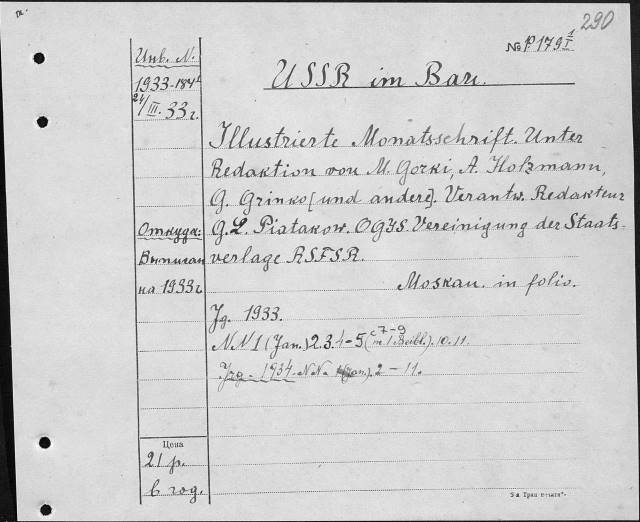 290
№ P.179 1/I
USSR im Bau.
Illustrierte Monatsschrift. Unter
Redaktion von M. Gorki, A. Holzmann,
G. Grinko [und andere]. Verantw. Redakteur
G. L. Piatakow. OGIS. Vereinigung der Staats-
verlage RSFSR.
Moskau. in folio.
Jg. 1933.
NN 1 (Jan.) 2.3.4-5 7-9 (m. 1 Beibl.). 10. 11.
Jrg. 1934. NN. (Jan.). 2-11.
Инв. N.
1933-
III. 33 г.
Откуда:
Выписан
на 1933 г.
Цена
21 р.
в год.